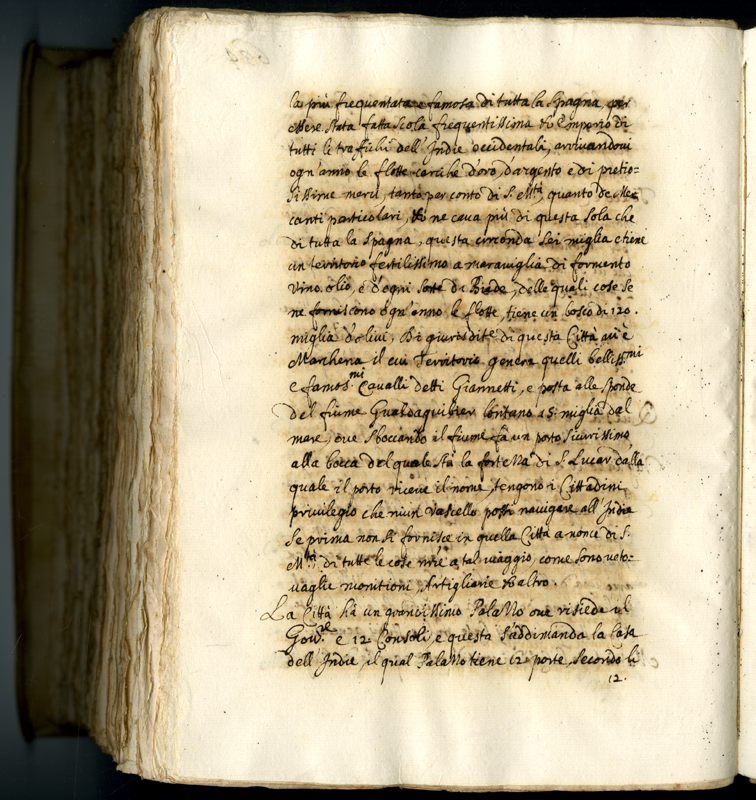 la più frequentata e famosa di tutta la Spagna, per
essere stata fatta scola frequentissima et Emporio di
tutti li traffichi dell'Indie occidentali, arrivandovi
ogn'anno le flotte cariche d'oro, d'argento e di pretio=
sissime merci, tanto per conto di S. M.tà, quanto de Mer
canti particolari, et ne cava più di questa sola che
di tutta la Spagna, questa circonda sei miglia e tiene
un territorio fertilissimo a maraviglia di formento
vino, olio, e d'ogni sorte di Biade, delle quali cose se
ne forniscono ogn'anno le flotte, tiene un bosco di 120.
miglia d'olivi, Di giurisdit.e di questa Città vi è
Marchena il cui Territorio genera quelli belliss.mi
e famos.mi Cavalli detti Giannetti, e posta alle sponde
del fiume Gualdaquibier lontano 45. miglia dal
mare, ove sboccando il fiume fà un porto sicurissimo
alla bocca del quale stà la fortezza di S. Lucar dalla
quale il porto riceve il nome, tengono i Cittadini
privilegio che niun vascello possi navigare all'India
se prima non si fornisce in quella Città a nome di S.
M.tà di tutte le cose nrie a tal viaggio, come sono veto=
vaglie monitioni, Artigliarie et altro.
La Città hà un grandissimo Palazzo ove risiede il
Gov.re e 12 Consoli e questa s'addimanda la Casa
dell'Indie, il qual Palazzo tiene 12 porte, secondo li
12.